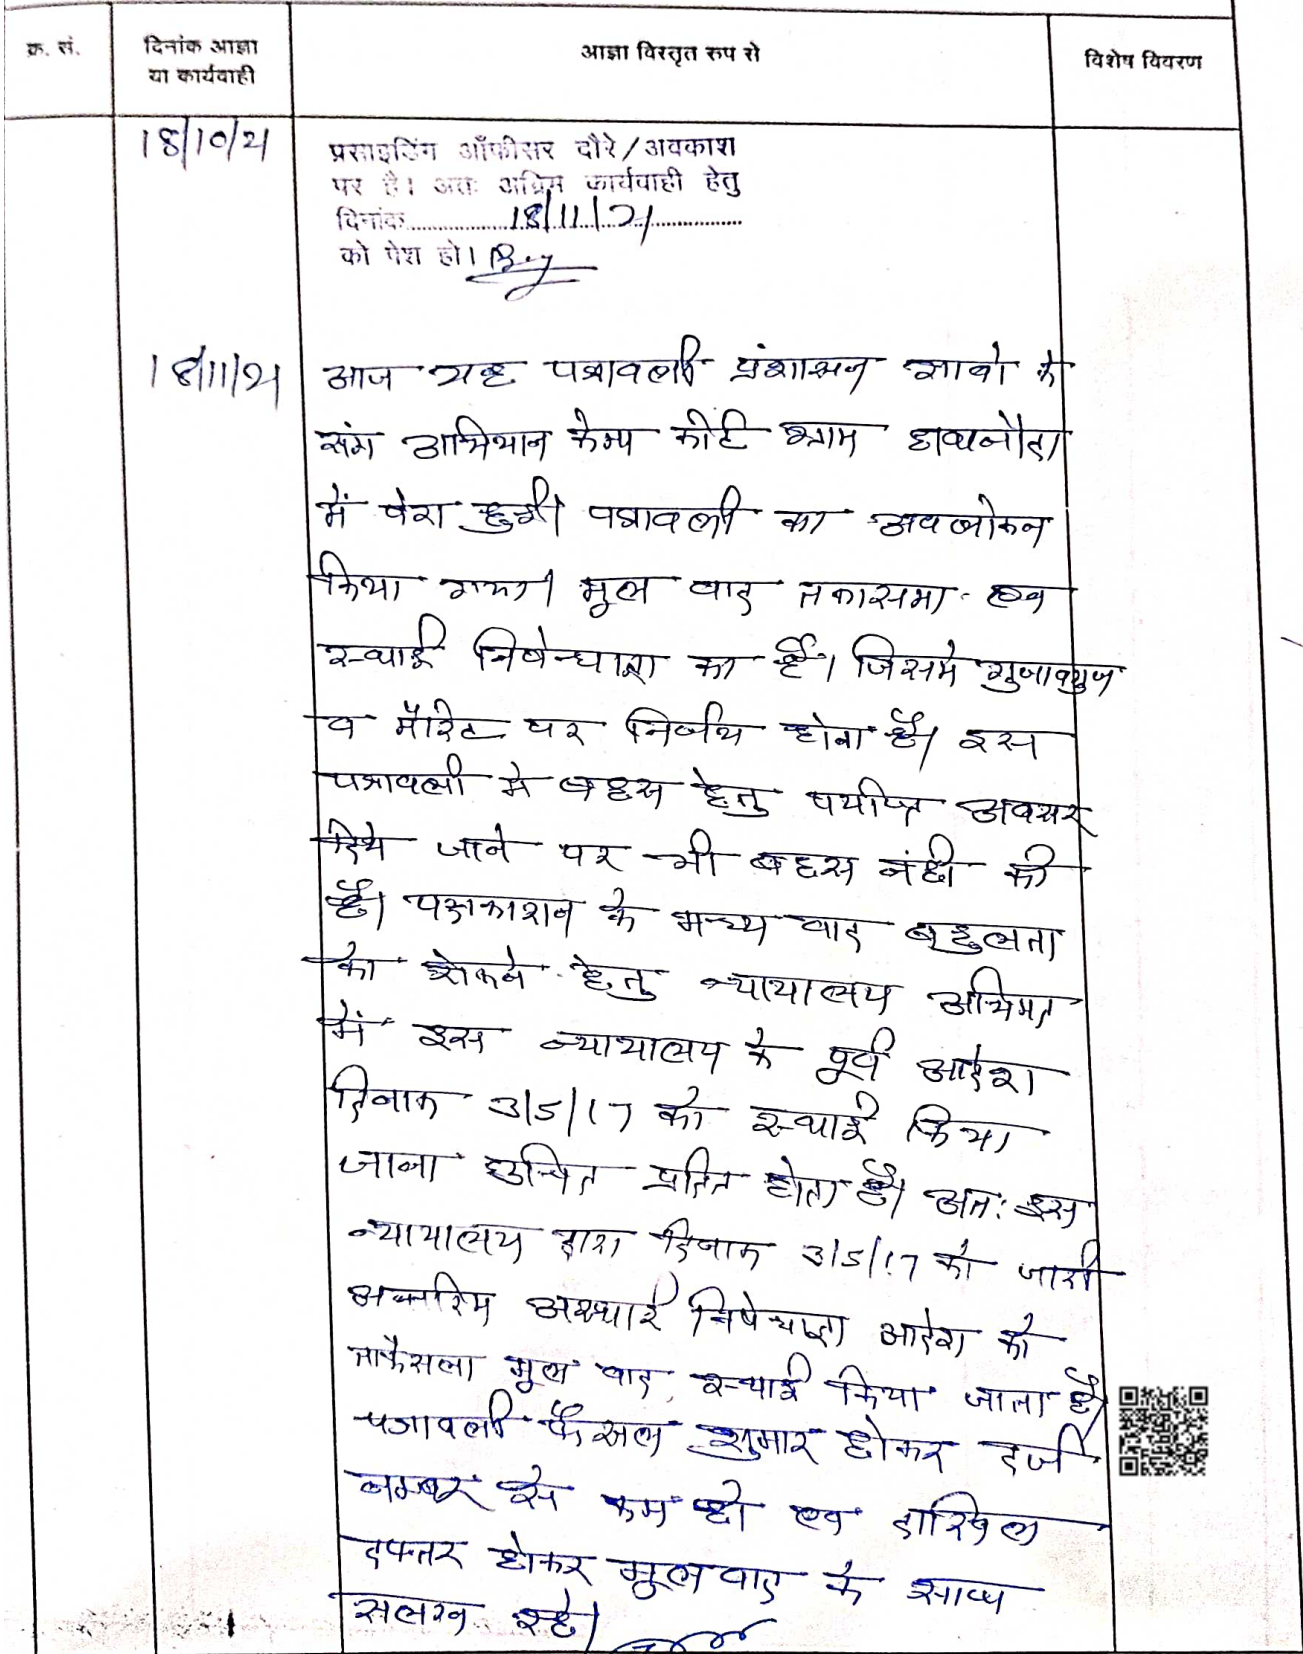 क्र. सं.
दिनांक आज्ञा
या कार्यवाही
आज्ञा विस्तृत रुप से
विशेष विवरण
18/10/21
प्रसाइडिंग ऑफीसर दौरे/अवकाश
पर है। अतः अग्रिम कार्यवाही हेतु
दिनांक..........18/11/21..........
को पेश हो।
18/11/21
आज यह पत्रावली प्रंशासन गावो के
संग अभियान केम्प कोर्ट ग्राम
में पेश हुई। पत्रावली का अवलोकन
किया गया। मूल वाद तकासमा एव
स्थाई निषेन्धाज्ञा का है। जिसमे गुणावगुण
व मैरिट पर निर्णय होना है। इस
पत्रावली मे बहस हेतु पर्याप्त अवसर
दिये जाने पर भी बहस नंही की
है। पक्षकारान के मध्य वाद बहुलता
को रोकने हेतु न्यायालय अभिमत
में इस न्यायालय के पूर्व आदेश
दिनाक 3/5/17 को स्थाई किया
जाना उचित प्रतित होता है। अतः इस
न्यायालय द्वारा दिनाक 3/5/17 को जारी
अन्तरिम अस्थाई निषेधाज्ञा आदेश को
ताफैसला मूल वाद स्थाई किया जाता है।
पत्रावली फैसल शुमार होकर दर्ज
नम्बर से कम हो एव दाखिल
दफ्तर होकर मूलवाद के साथ
सलग्न रहे।